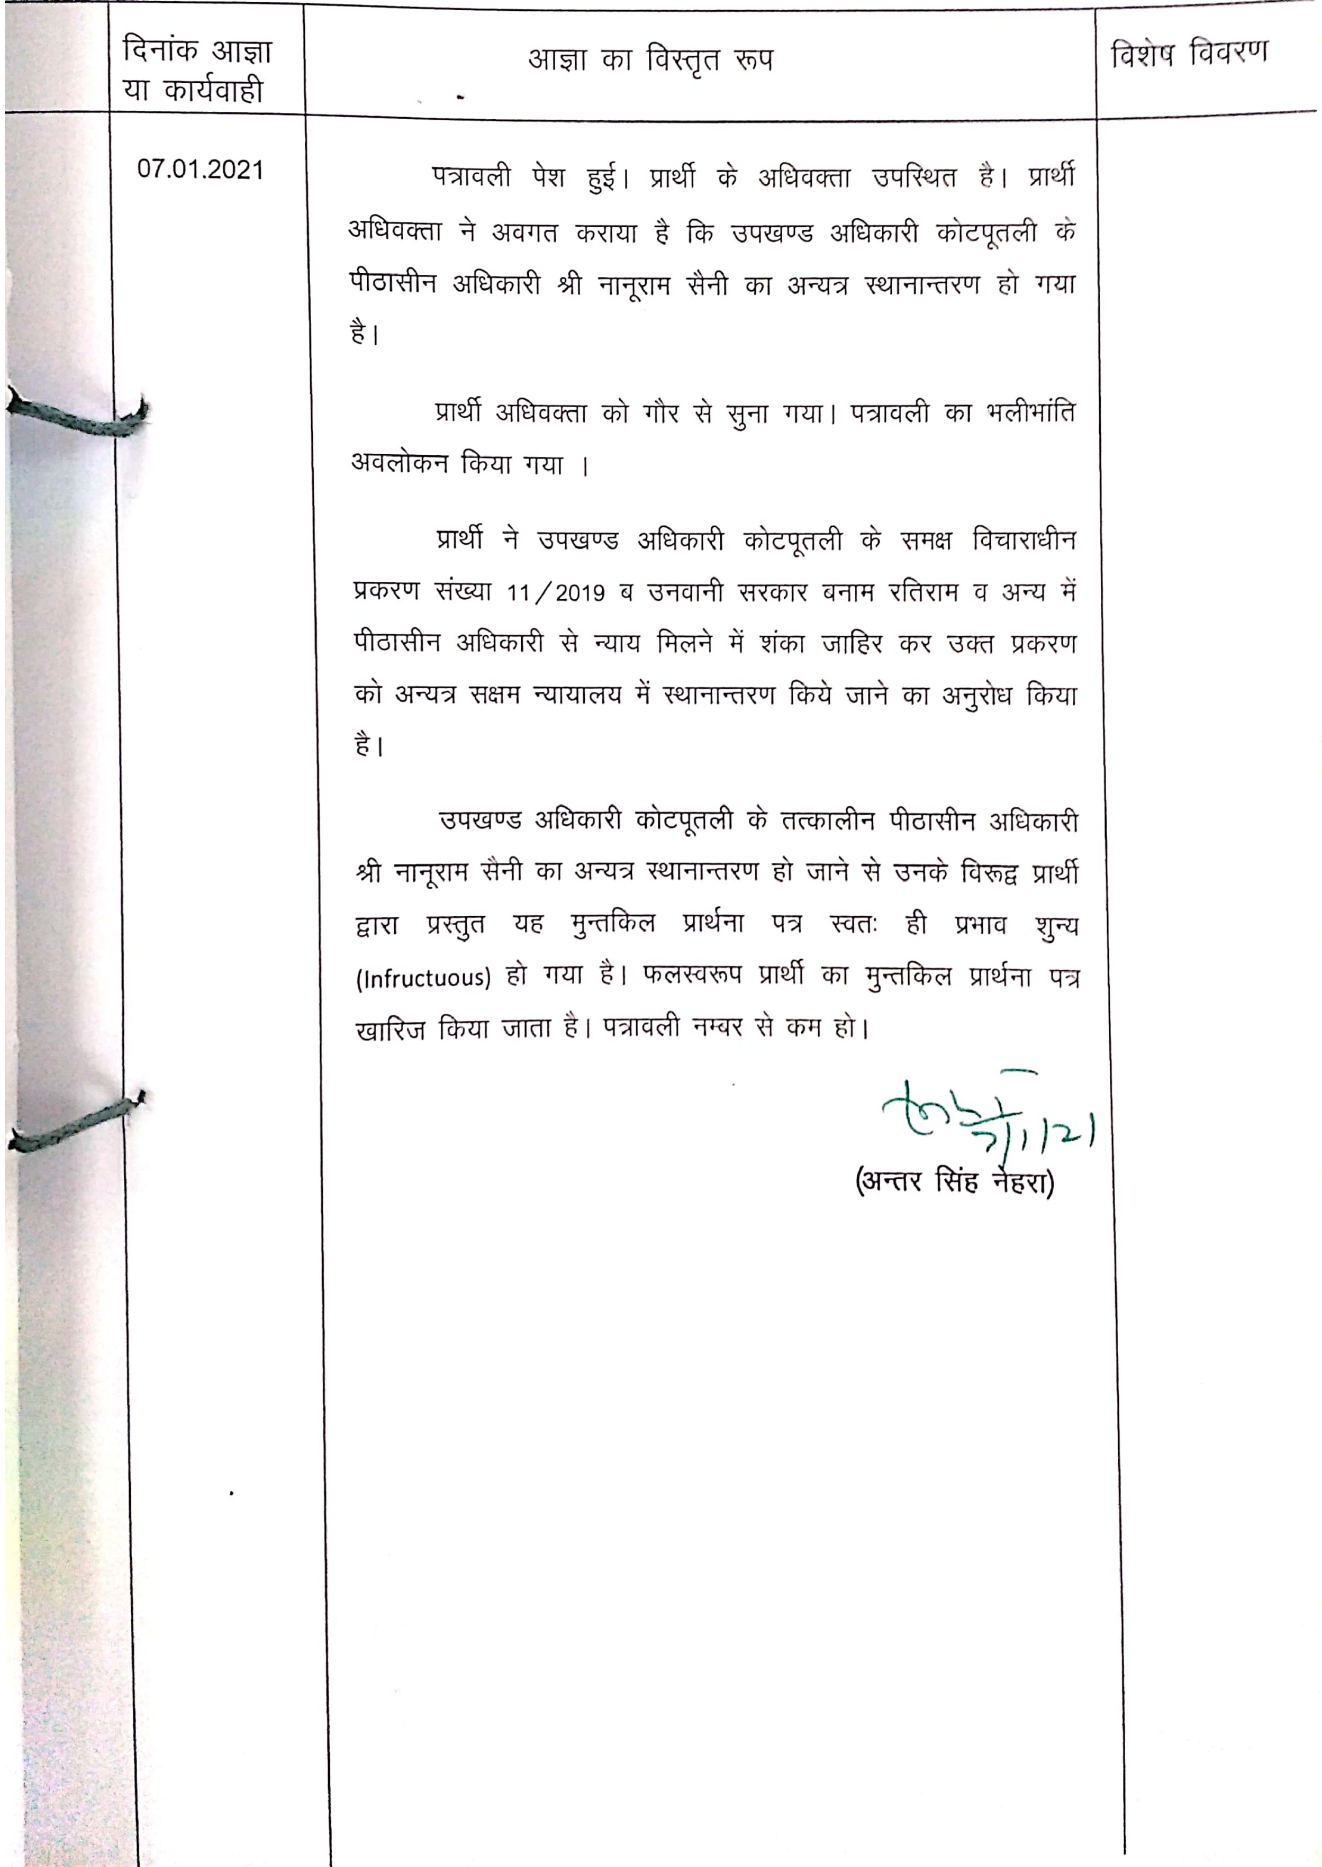 दिनांक आज्ञा
या कार्यवाही
आज्ञा का विस्तृत रूप
विशेष विवरण
07.01.2021
पत्रावली पेश हुई। प्रार्थी के अधिवक्ता उपस्थित है। प्रार्थी
अधिवक्ता ने अवगत कराया है कि उपखण्ड अधिकारी कोटपूतली के
पीठासीन अधिकारी श्री नानूराम सैनी का अन्यत्र स्थानान्तरण हो गया
है।
प्रार्थी अधिवक्ता को गौर से सुना गया। पत्रावली का भलीभांति
अवलोकन किया गया ।
प्रार्थी ने उपखण्ड अधिकारी कोटपूतली के समक्ष विचाराधीन
प्रकरण संख्या 11/2019 ब उनवानी सरकार बनाम रतिराम व अन्य में
पीठासीन अधिकारी से न्याय मिलने में शंका जाहिर कर उक्त प्रकरण
को अन्यत्र सक्षम न्यायालय में स्थानान्तरण किये जाने का अनुरोध किया
है।
उपखण्ड अधिकारी कोटपूतली के तत्कालीन पीठासीन अधिकारी
श्री नानूराम सैनी का अन्यत्र स्थानान्तरण हो जाने से उनके विरूद्व प्रार्थी
द्वारा प्रस्तुत यह मुन्तकिल प्रार्थना पत्र स्वतः ही प्रभाव शुन्य
(Infructuous) हो गया है। फलस्वरूप प्रार्थी का मुन्तकिल प्रार्थना पत्र
खारिज किया जाता है। पत्रावली नम्बर से कम हो।
7/1/21
(अन्तर सिंह नेहरा)